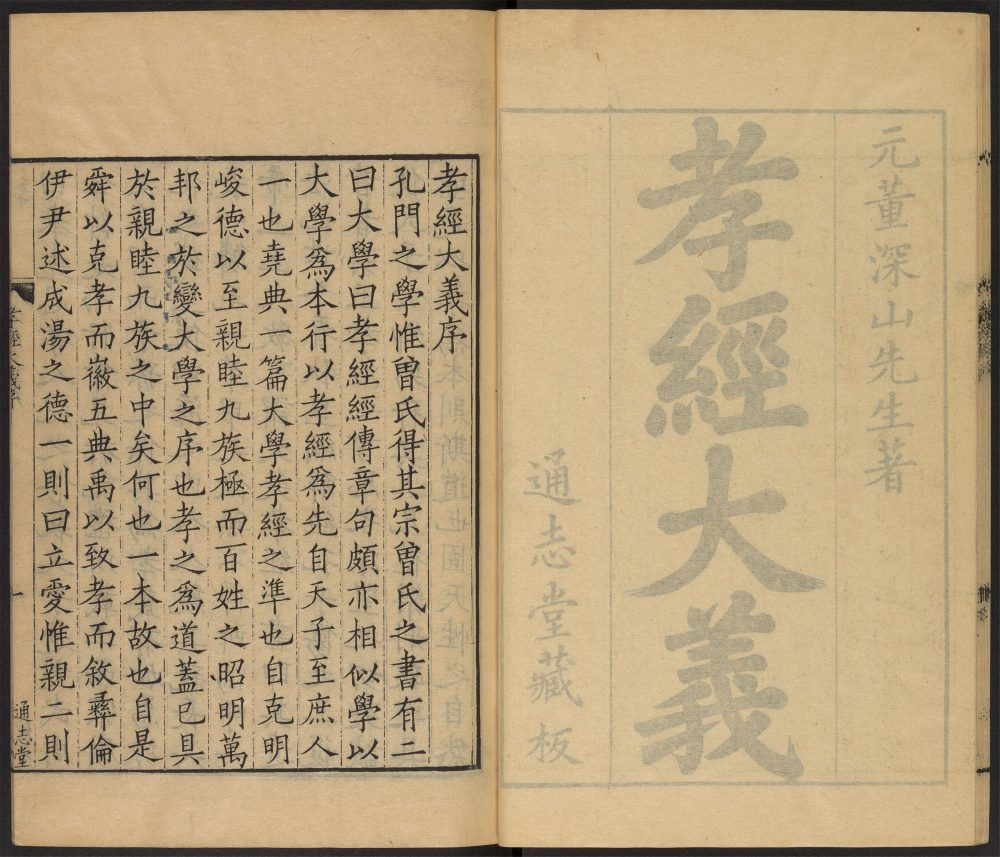 元董深山先生著
孝經大義
通志堂藏板
孝經大義序
孔門之學惟曾氏得其宗曾氏之書有二
曰大學曰孝經經傳章句頗亦相似學以
大學爲本行以孝經爲先自天子至庶人
一也堯典一篇大學孝經之準也自克明
峻德以至親睦九族極而百姓之昭明萬
邦之於變大學之序也孝之爲道蓋已具
於親睦九族之中矣何也一本故也自是
舜以克孝而徽五典禹以致孝而敘彝倫
伊尹述成湯之德一則曰立愛惟親二則
孝經大義序
一
通志堂